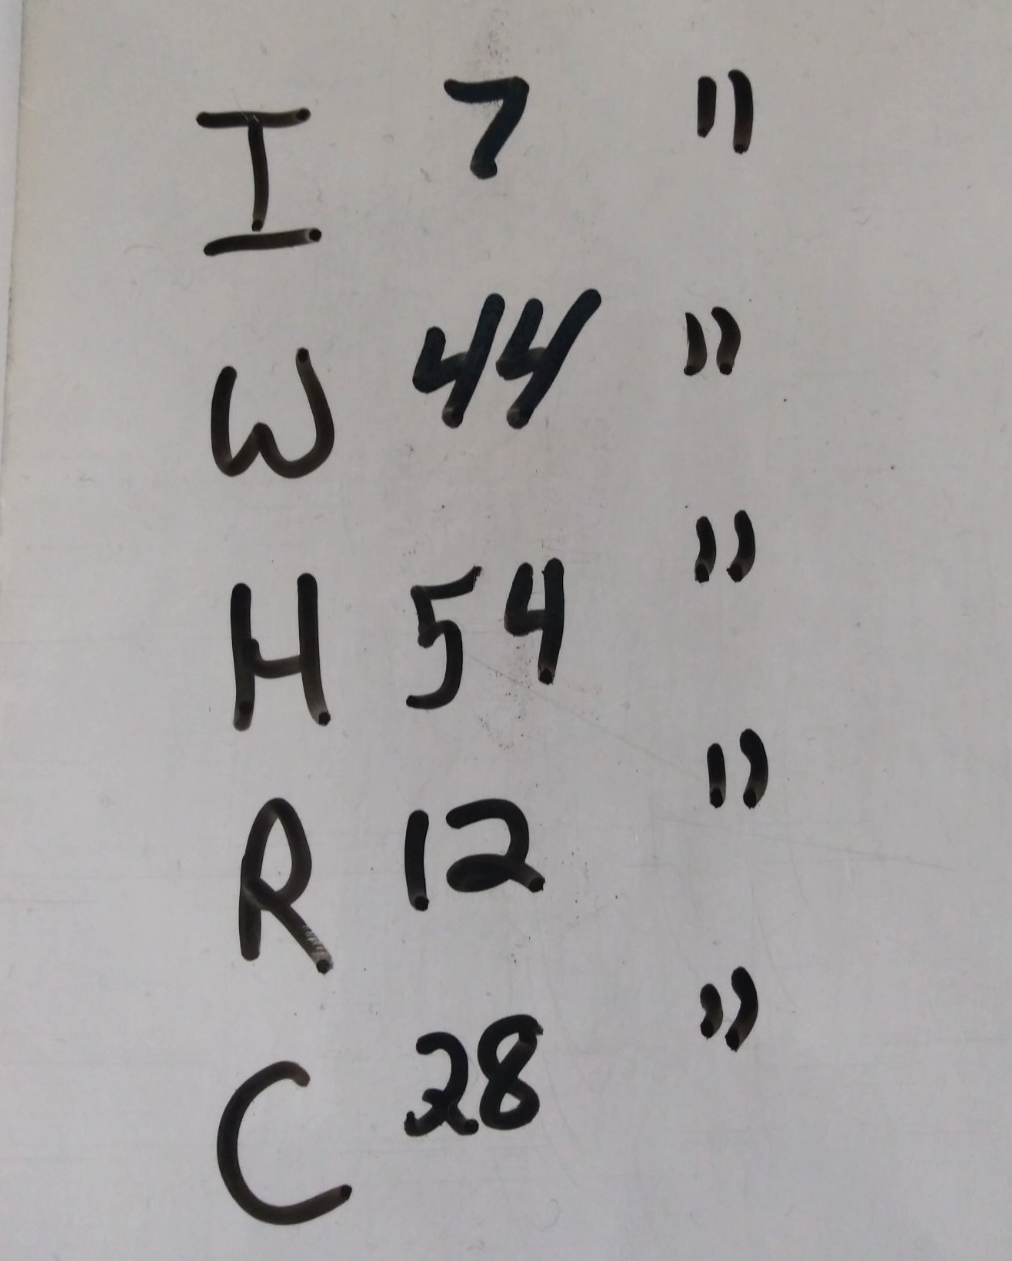 I 7 "
W 44 "
H 54 "
R 12 "
C 28 "